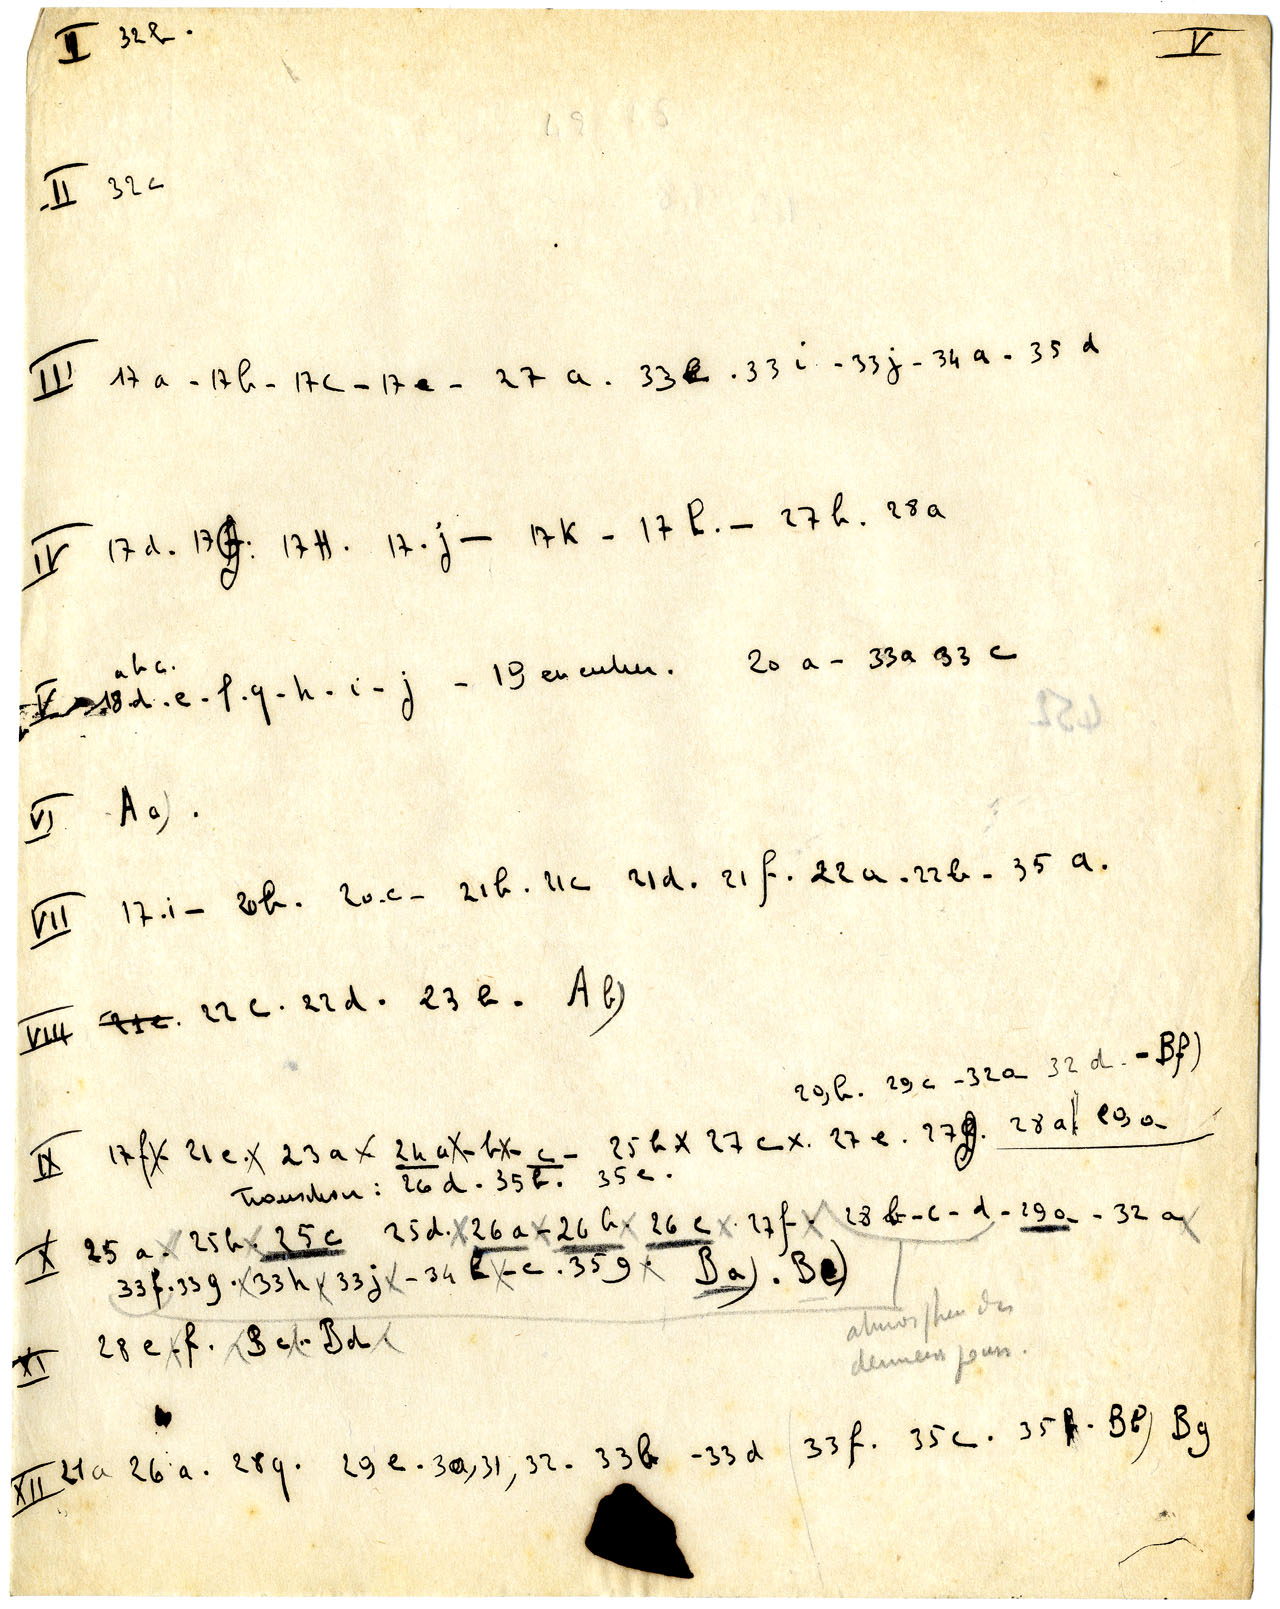 I 32b.
V
II 32c
III 17a - 17b - 17c - 17e - 27 a. 33b . 33 i - 33j - 34a - 35 d
IV 17d. 17g. 17H. 17.j — 17K - 17 l. — 27b. 28a
abc.
V 18.d. e - f. g - h - i - j - 19 20 a - 33a 33 c
452
VI A a) .
VII 17.i — 20b. 20.c — 21b. 21c 21d. 21f. 22a . 22b - 35 a.
VIII 21c. 22c. 22d. 23 b. A b)
29,b. 29c - 32a 32 d. - Bf)
IX 17f 21e. 23a 24a - b - c - 25b 27c . 27e. 27g. 28a 29a
Transition : 26 d. 35b. 35e.
X 25 a - 25b. 25c 25d. 26a - 26b. 26c . 27f. 28b - c - d - 29a - 32 a
33f. 33g. 33h 33j - 34 b - c . 35g. Ba). Be)
atmosphère des
derniers jours.
XI 28 e - f. Bc - Bd
XII 21a 26 a. 28g. 29e. 30,31,32. 33b - 33d 33f. 35c. 35f. Bb) Bg